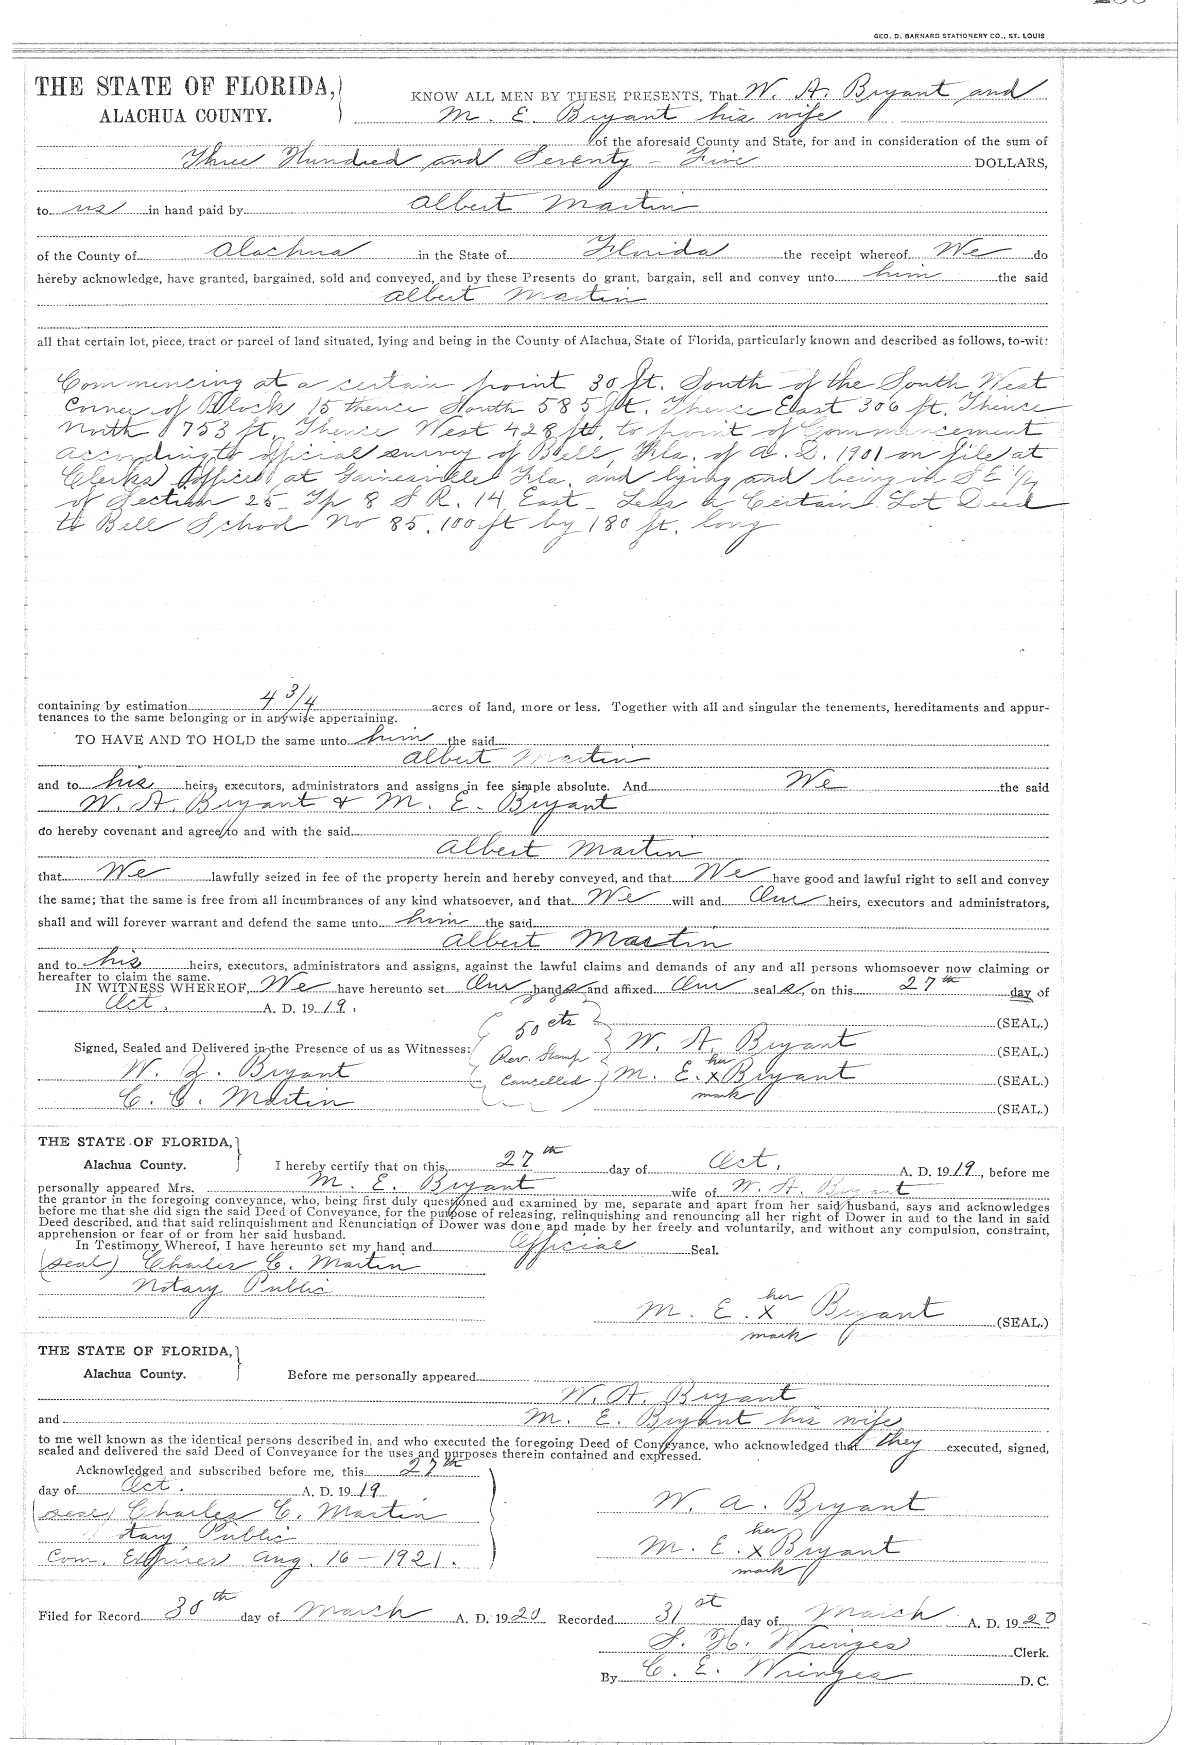 GEO. D. BARNARD STATIONERY CO., ST. LOUIS
THE STATE OF FLORIDA,
ALACHUA COUNTY.
KNOW ALL MEN BY THESE PRESENTS, That W. A. Bryant and
M. E. Bryant his wife
of the aforesaid County and State, for and in consideration of the sum of
Three Hundred and Seventy - Five DOLLARS,
to us in hand paid by Albert Martin
of the County of Alachua in the State of Florida the receipt whereof We do
hereby acknowledge, have granted, bargained, sold and conveyed, and by these Presents do grant, bargain, sell and convey unto him the said
Albert Martin
all that certain lot, piece, tract or parcel of land situated, lying and being in the County of Alachua, State of Florida, particularly known and described as follows, to-wit:
Commencing at a certain point 30 ft. South of the South West
Corner of Block 15 thence South 585 ft. Thence East 306 ft. Thence
North 753 ft. Thence West 428 ft. to point of Commencement
according to official survey of Bell, Fla. of A. D. 1901 on file at
Clerks office at Gainesville Fla. and lying and being in S E 1/4
of Section 25 - Tp 8 S R. 14 East - Less a Certain Lot Deed
to Bell School No 85. 100 ft by 180 ft. long
containing by estimation 4 3/4 acres of land, more or less. Together with all and singular the tenements, hereditaments and appur-
tenances to the same belonging or in anywise appertaining.
TO HAVE AND TO HOLD the same unto him the said
Albert Martin
and to his heirs, executors, administrators and assigns in fee simple absolute. And We the said
W. A. Bryant & M. E. Bryant
do hereby covenant and agree to and with the said
Albert Martin
that We lawfully seized in fee of the property herein and hereby conveyed, and that We have good and lawful right to sell and convey
the same; that the same is free from all incumbrances of any kind whatsoever, and that We will and Our heirs, executors and administrators,
shall and will forever warrant and defend the same unto him the said
Albert Martin
and to his heirs, executors, administrators and assigns, against the lawful claims and demands of any and all persons whomsoever now claiming or
hereafter to claim the same.
IN WITNESS WHEREOF, We have hereunto set Our hands and affixed Our seals, on this 27th day of
Oct. A. D. 1919.
(SEAL.)
Signed, Sealed and Delivered in the Presence of us as Witnesses: 50 cts W. A. Bryant (SEAL.)
W. Z. Bryant Rev. Stamp her
Cancelled M. E. x Bryant (SEAL.)
C. C. Martin mark (SEAL.)
THE STATE OF FLORIDA,
Alachua County. I hereby certify that on this 27th day of Oct. A. D. 1919, before me
personally appeared Mrs. M. E. Bryant wife of W. A. Bryant
the grantor in the foregoing conveyance, who, being first duly questioned and examined by me, separate and apart from her said husband, says and acknowledges
before me that she did sign the said Deed of Conveyance, for the purpose of releasing, relinquishing and renouncing all her right of Dower in and to the land in said
Deed described, and that said relinquishment and Renunciation of Dower was done and made by her freely and voluntarily, and without any compulsion, constraint,
apprehension or fear of or from her said husband.
In Testimony Whereof, I have hereunto set my hand and Official Seal.
(seal) Charles C. Martin
Notary Public
her
M. E. x Bryant (SEAL.)
mark
THE STATE OF FLORIDA,
Alachua County. Before me personally appeared
W. A. Bryant
and M. E. Bryant his wife
to me well known as the identical persons described in, and who executed the foregoing Deed of Conveyance, who acknowledged that they executed, signed,
sealed and delivered the said Deed of Conveyance for the uses and purposes therein contained and expressed.
Acknowledged and subscribed before me, this 27th
day of Oct. A. D. 1919.
(seal) Charles C. Martin W. A. Bryant
Notary Public her
Com. Expires Aug. 16 - 1921. M. E. x Bryant
mark
Filed for Record 30th day of March A. D. 1920 Recorded 31st day of March A. D. 1920
S. H. Wienges Clerk.
By C. E. Wienges D. C.